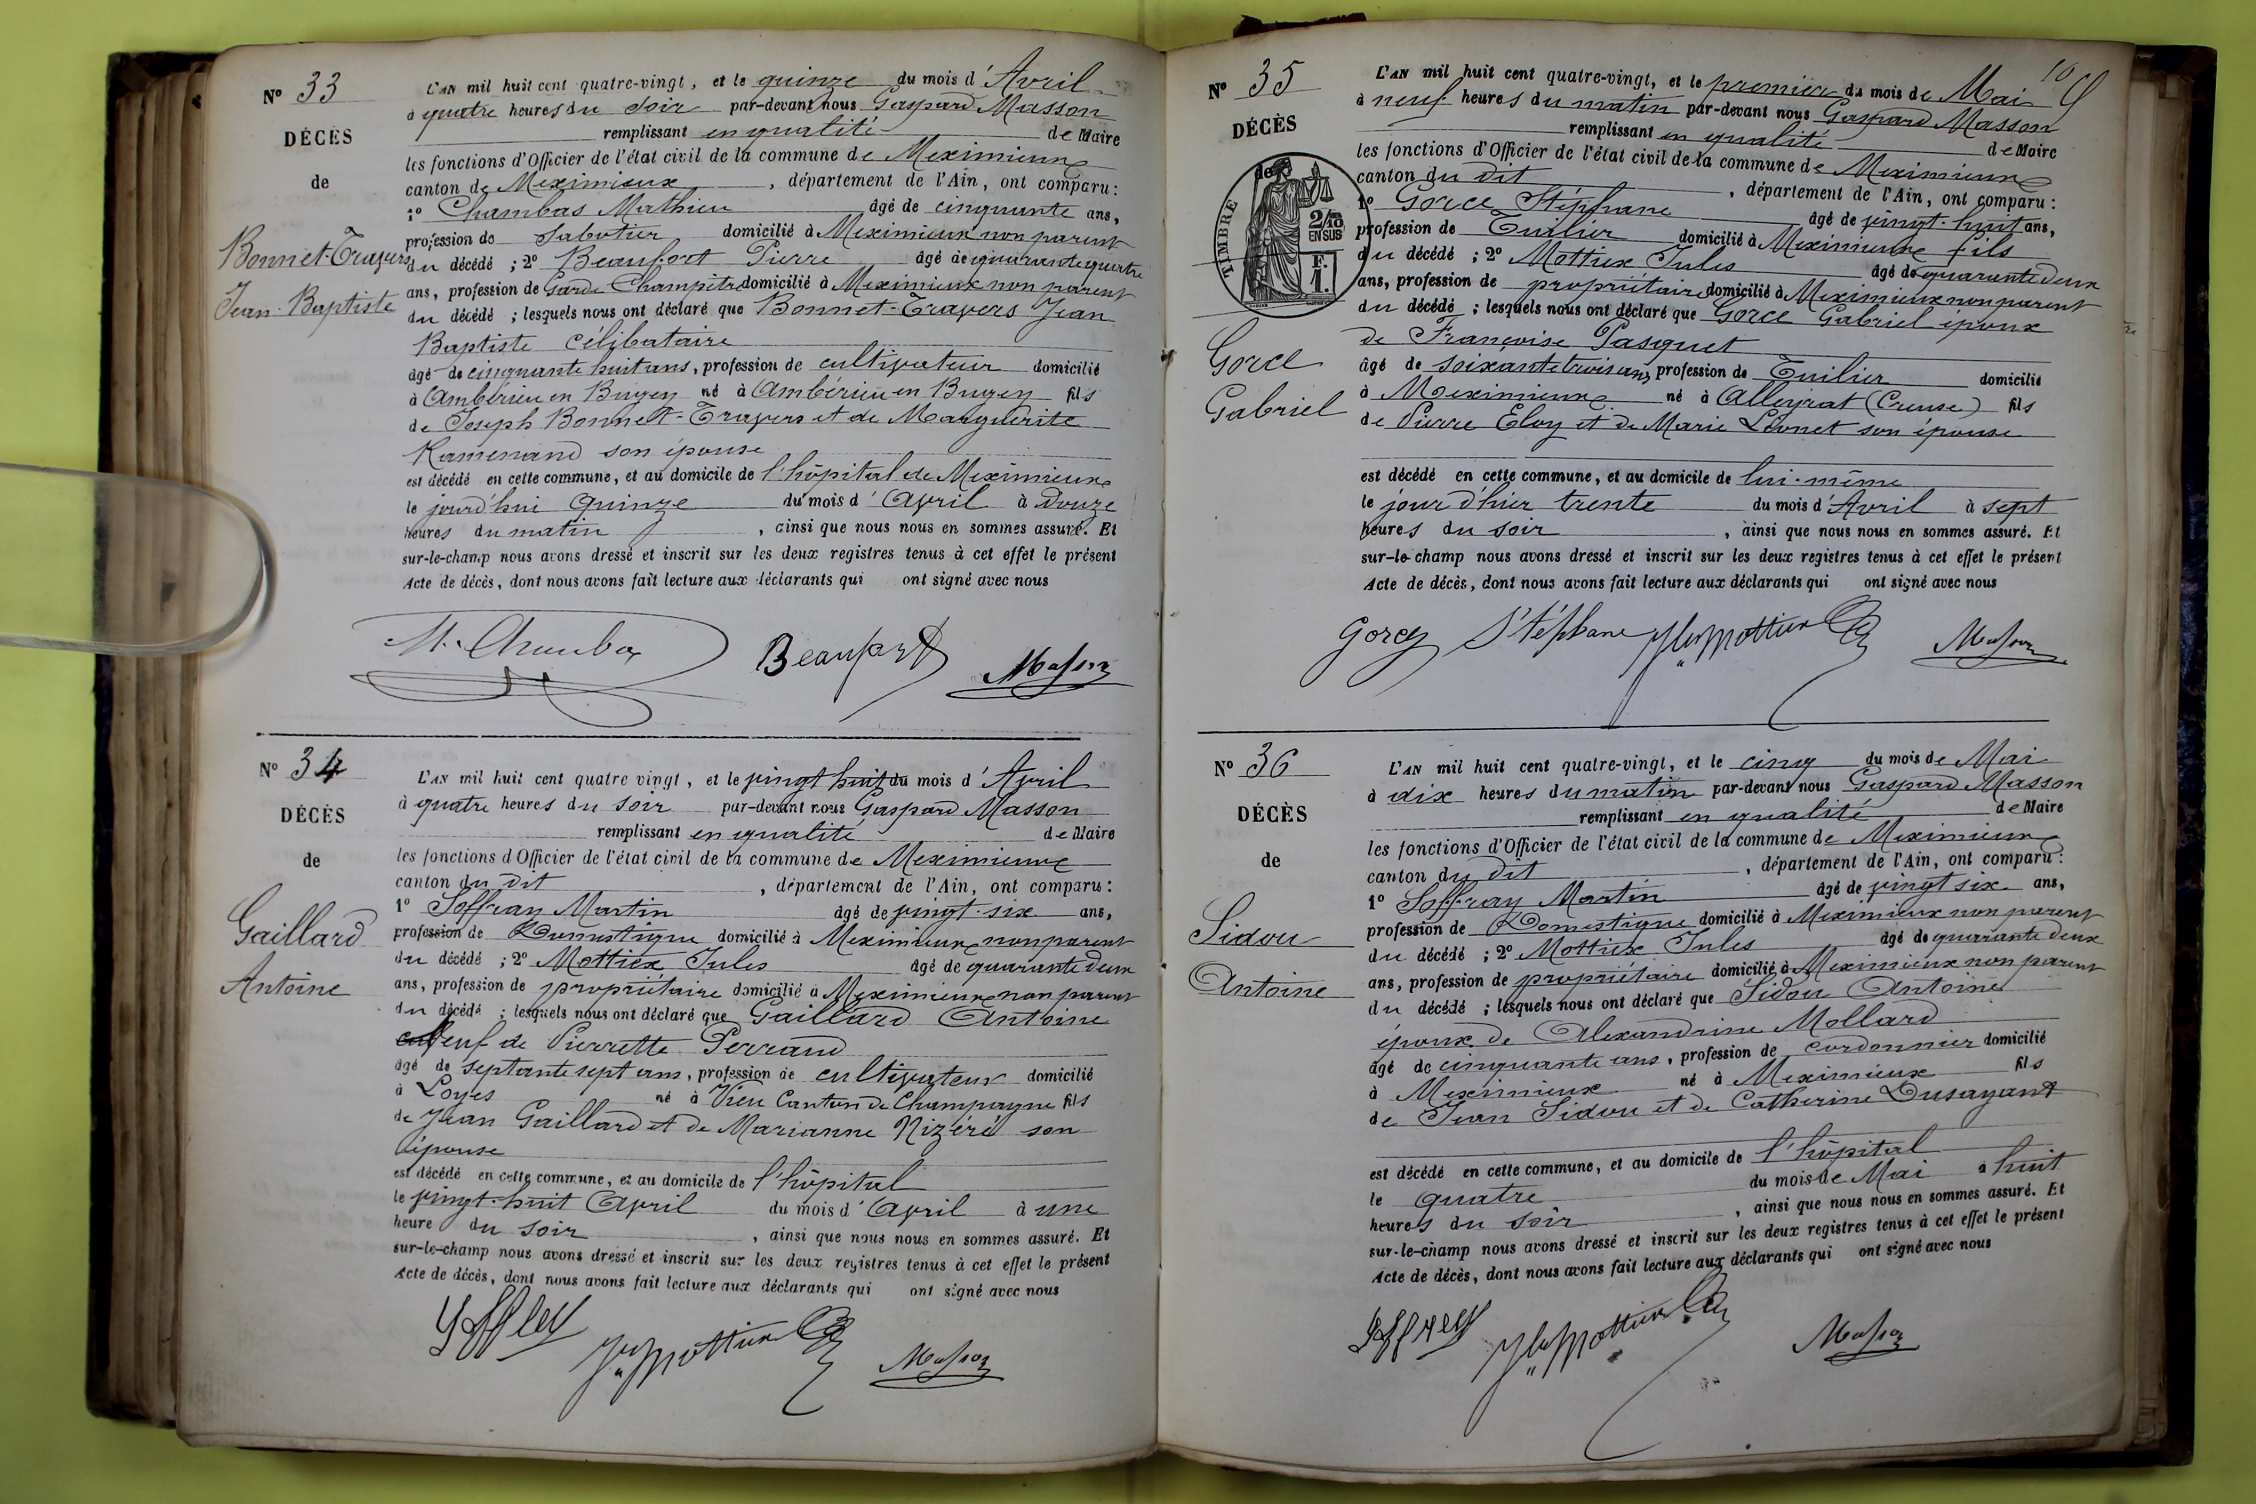 N° 33
DÉCÈS
de
Bonnet-Travers
Jean-Baptiste
L'AN mil huit cent quatre-vingt, et le quinze du mois d'Avril
à quatre heures du soir par-devant nous Gaspard Masson
remplissant en qualité de Maire
les fonctions d'Officier de l'état civil de la commune de Meximieux
canton de Meximieux, département de l'Ain, ont comparu:
1° Chambas Mathieu âgé de cinquante ans,
profession de Sabotier domicilié à Meximieux non parent
du décédé ; 2° Beaufort Pierre âgé de quarante quatre
ans, profession de Garde Champêtre domicilié à Meximieux non parent
du décédé ; lesquels nous ont déclaré que Bonnet-Travers Jean
Baptiste célibataire
âgé de cinquante huit ans, profession de cultivateur domicilié
à Ambérieu en Bugey né à Ambérieu-en Bugey fils
de Joseph Bonnet-Travers et de Marguerite
son épouse
est décédé en cette commune, et au domicile de l'hôpital de Meximieux
le jourd'hui quinze du mois d'Avril à Douze
heures du matin, ainsi que nous nous en sommes assuré. Et
sur-le-champ nous avons dressé et inscrit sur les deux registres tenus à cet effet le présent
Acte de décès, dont nous avons fait lecture aux déclarants qui ont signé avec nous
M. Chambas Beaufort Masson
N° 34
DÉCÈS
de
Gaillard
Antoine
L'AN mil huit cent quatre vingt, et le vingt huit du mois d'Avril
à quatre heures du soir par-devant nous Gaspard Masson
remplissant en qualité de Maire
les fonctions d'Officier de l'état civil de la commune de Meximieux
canton du dit, département de l'Ain, ont comparu:
1° Soffray Martin âgé de vingt-six ans,
profession de Domestique domicilié à Meximieux non parent
du décédé ; 2° Mottiex Jules âgé de quarante deux
ans, profession de propriétaire domicilié à Meximieux non parent
du décédé ; lesquels nous ont déclaré que Gaillard Antoine
veuf de Pierrette Perrand
âgé de septante sept ans, profession de cultivateur domicilié
à Loyes né à Vieu Canton de Champagne fils
de Jean Gaillard et de Marianne Nizéré son
épouse
est décédé en cette commune, et au domicile de l'hôpital
le vingt-huit Avril du mois d'Avril à une
heure du soir, ainsi que nous nous en sommes assuré. Et
sur-le-champ nous avons dressé et inscrit sur les deux registres tenus à cet effet le présent
Acte de décès, dont nous avons fait lecture aux déclarants qui ont signé avec nous
Jles Mottiex Masson
10
N° 35
DÉCÈS
de
TIMBRE
2/10
EN SUS
F.
1.
Gorce
Gabriel
L'AN mil huit cent quatre-vingt, et le premier du mois de Mai
à neuf heures du matin par-devant nous Gaspard Masson
remplissant en qualité de Maire
les fonctions d'Officier de l'état civil de la commune de Meximieux
canton du dit, département de l'Ain, ont comparu:
1° Gorce Stéphane âgé de vingt-huit ans,
profession de Tuilier domicilié à Meximieux fils
du décédé ; 2° Mottiex Jules âgé de quarante deux
ans, profession de propriétaire domicilié à Meximieux non parent
du décédé ; lesquels nous ont déclaré que Gorce Gabriel époux
de Françoise Pasquet
âgé de soixante trois ans, profession de Tuilier domicilié
à Meximieux né à Alleyrat (Creuse) fils
de Pierre Eloy et de Marie Léonet son épouse
est décédé en cette commune, et au domicile de lui-même
le jour d'hier trente du mois d'Avril à sept
heures du soir, ainsi que nous nous en sommes assuré. Et
sur-le-champ nous avons dressé et inscrit sur les deux registres tenus à cet effet le présent
Acte de décès, dont nous avons fait lecture aux déclarants qui ont signé avec nous
Gorce Stéphane Jles Mottiex Masson
N° 36
DÉCÈS
de
Sidou
Antoine
L'AN mil huit cent quatre-vingt, et le cinq du mois de Mai
à dix heures du matin par-devant nous Gaspard Masson
remplissant en qualité de Maire
les fonctions d'Officier de l'état civil de la commune de Meximieux
canton du dit, département de l'Ain, ont comparu:
1° Soffray Martin âgé de vingt six ans,
profession de Domestique domicilié à Meximieux non parent
du décédé ; 2° Mottiex Jules âgé de quarante deux
ans, profession de propriétaire domicilié à Meximieux non parent
du décédé ; lesquels nous ont déclaré que Sidou Antoine
époux de Alexandrine Mollard
âgé de cinquante ans, profession de cordonnier domicilié
à Meximieux né à Meximieux fils
de Jean Sidou et de Catherine Dusayant
est décédé en cette commune, et au domicile de l'hôpital
le quatre du mois de Mai à huit
heures du soir, ainsi que nous nous en sommes assuré. Et
sur-le-champ nous avons dressé et inscrit sur les deux registres tenus à cet effet le présent
Acte de décès, dont nous avons fait lecture aux déclarants qui ont signé avec nous
Jles Mottiex Masson